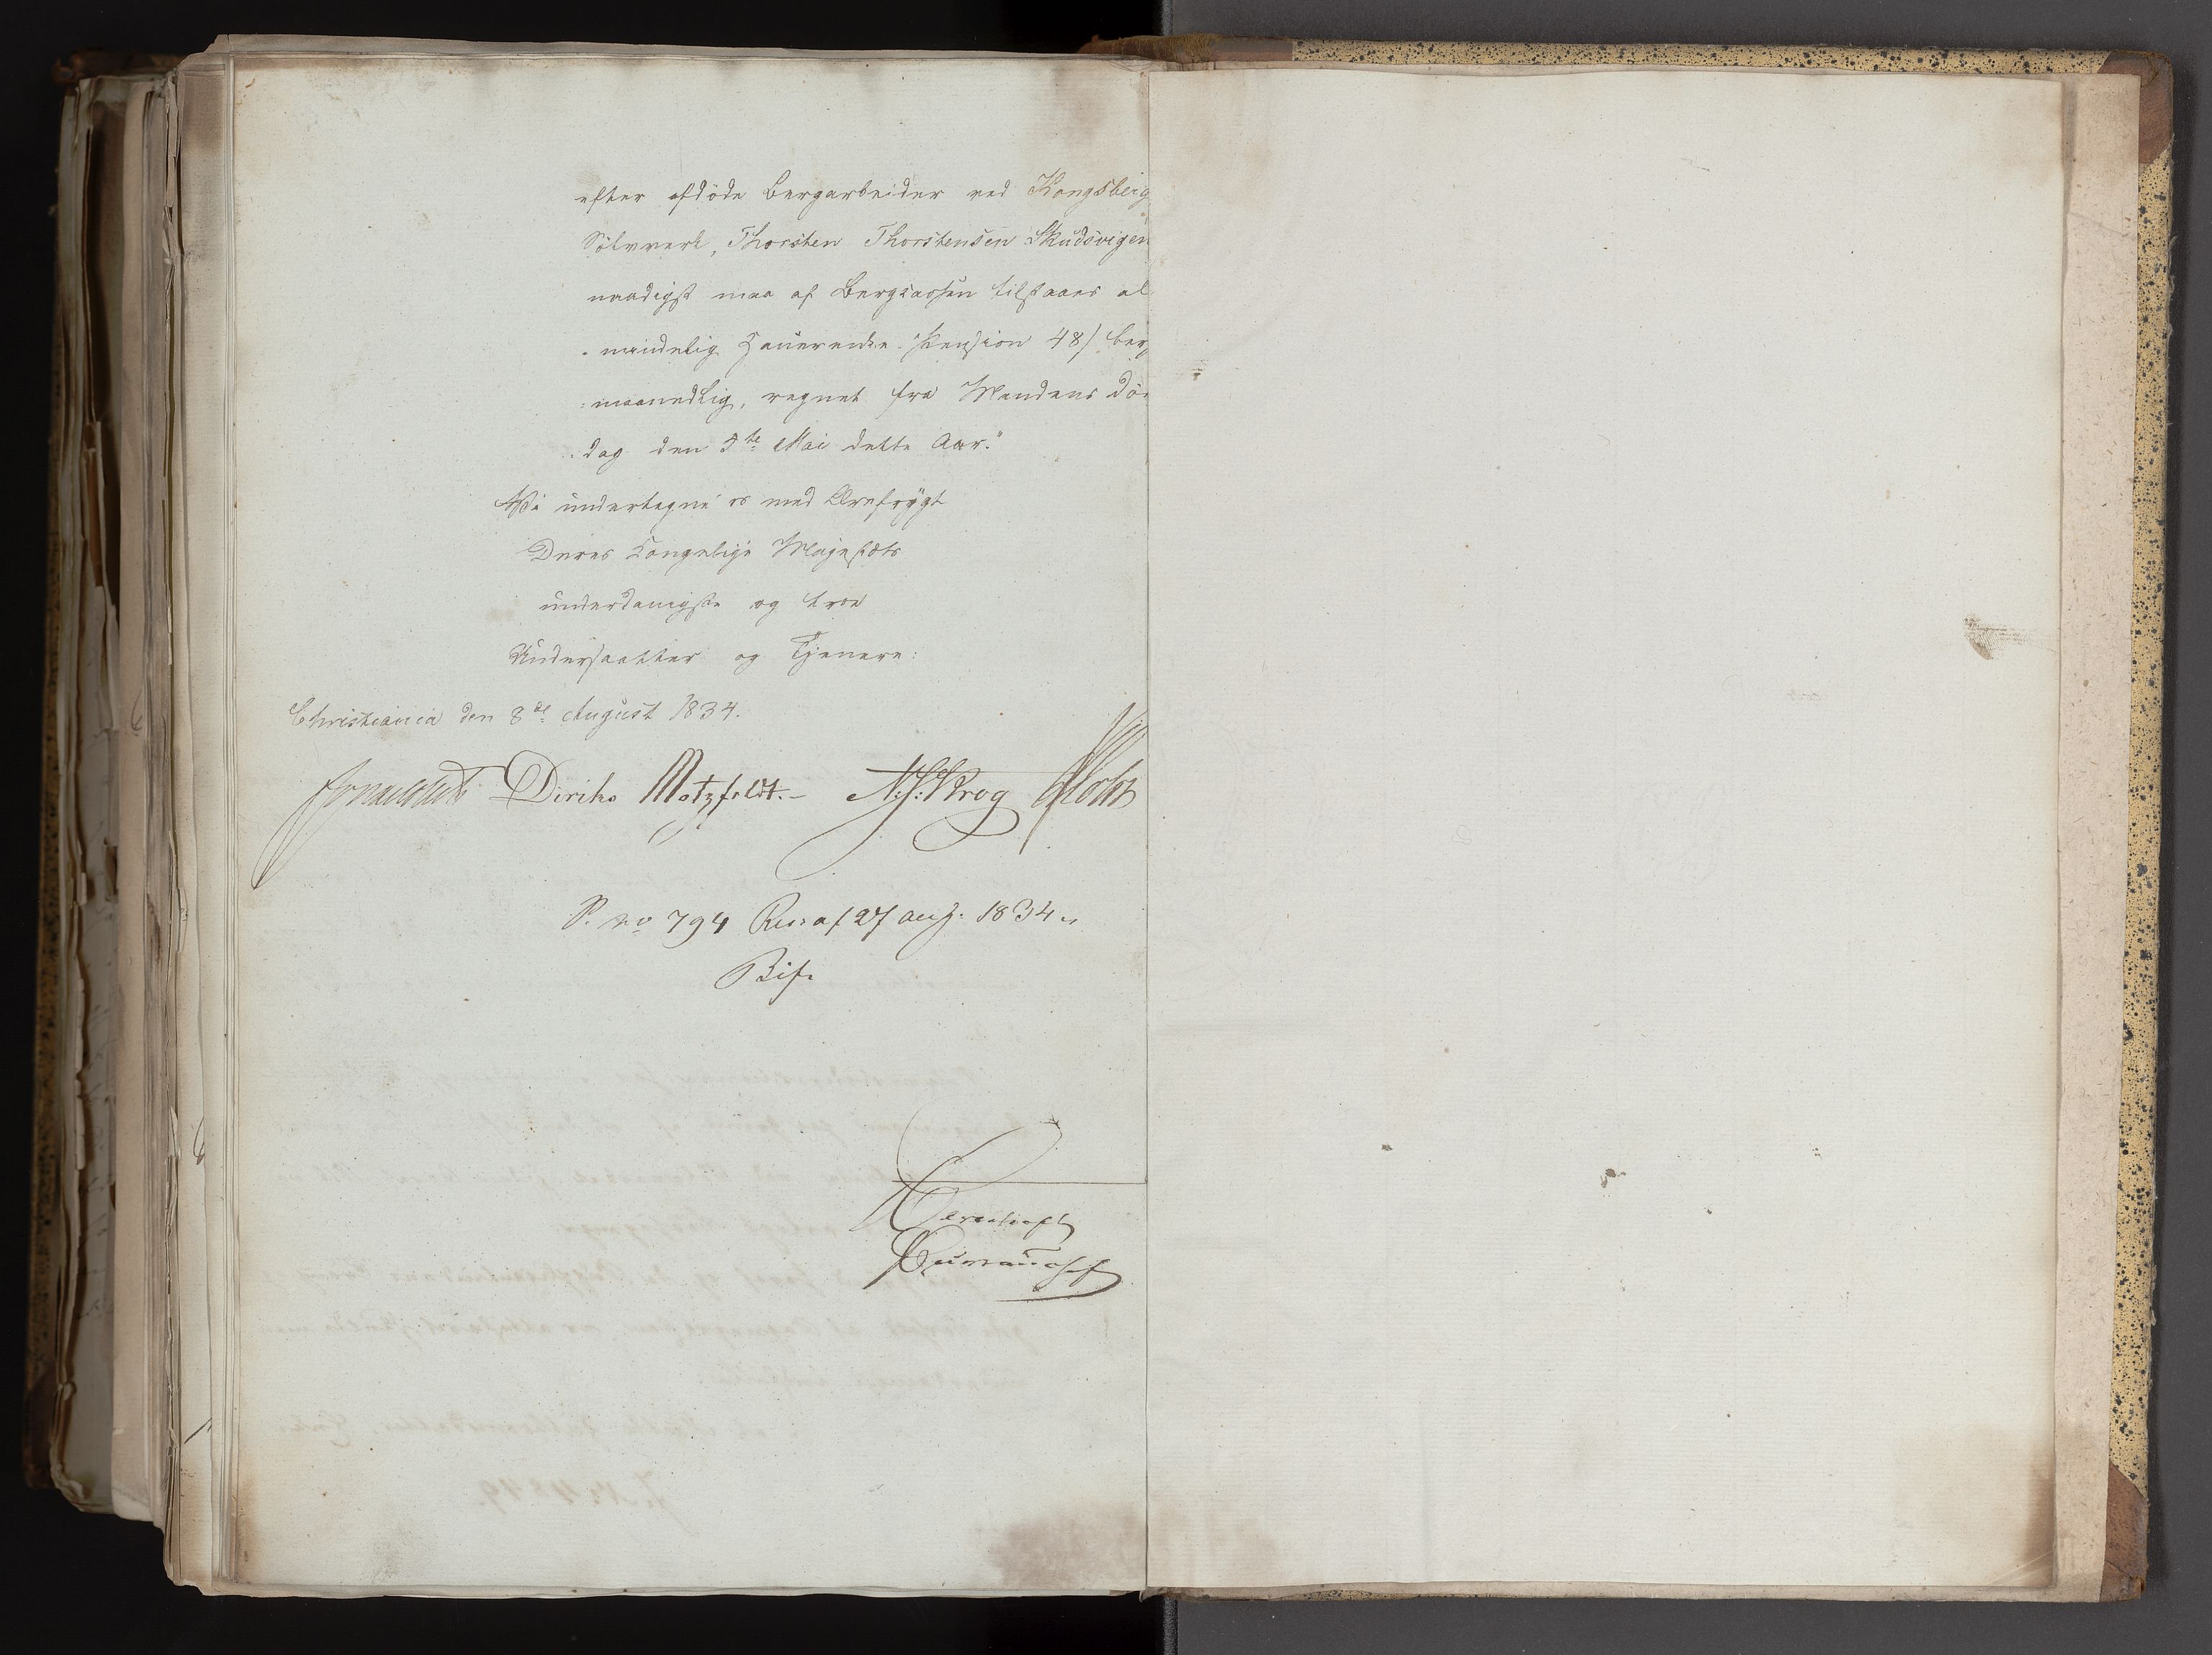 efter afdöde Bergarbeider ved Kongsberg
Sölvverk, Thorsten Thorstensen Skudsvigen
naadigst maa af Bergcassen tilstaaes al
mindelig Hauerenke-Pension 48/ ber
maanedlig, regnet fra Mandens Dö
dag den 5te Mai dette Aar."
Vi undertegne os med Ærefrygt
Deres Kongelige Majestæts
underdanigste og troe
Undersaatter og Tjenere:
Christiania den 8de August 1834.
Diriks Motzfeldt.- N:J:Krog Holst
P. No 794 Res: af 27 Aug. 1834.
Bif.